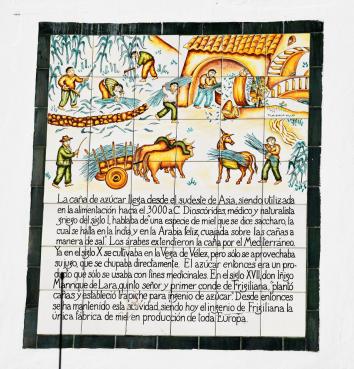 La caña de azúcar llega desde el sudeste de Asia, siendo utilizada
en la alimentación hacia el 3000 a.C. Dioscórides, médico y naturalista
griego del siglo I, hablaba de "una especie de miel que se dice saccharo, la
cual se halla en la India, y en la Arabia feliz, cuajada sobre las cañas a
manera de sal". Los árabes extendieron la caña por el Mediterráneo.
Ya en el siglo X se cultivaba en la Vega de Vélez, pero solo se aprovechaba
su jugo, que se chupaba directamente. El azúcar entonces era un pro-
ducto que sólo se usaba con fines medicinales. En el siglo XVII, don Iñigo
Manrique de Lara, quinto señor y primer conde de Frigiliana, "plantó
cañas y estableció trapiche para ingenio de azúcar". Desde entonces
se ha mantenido esta actividad, siendo hoy el ingenio de Frigiliana la
única fábrica de miel en producción de toda Europa.